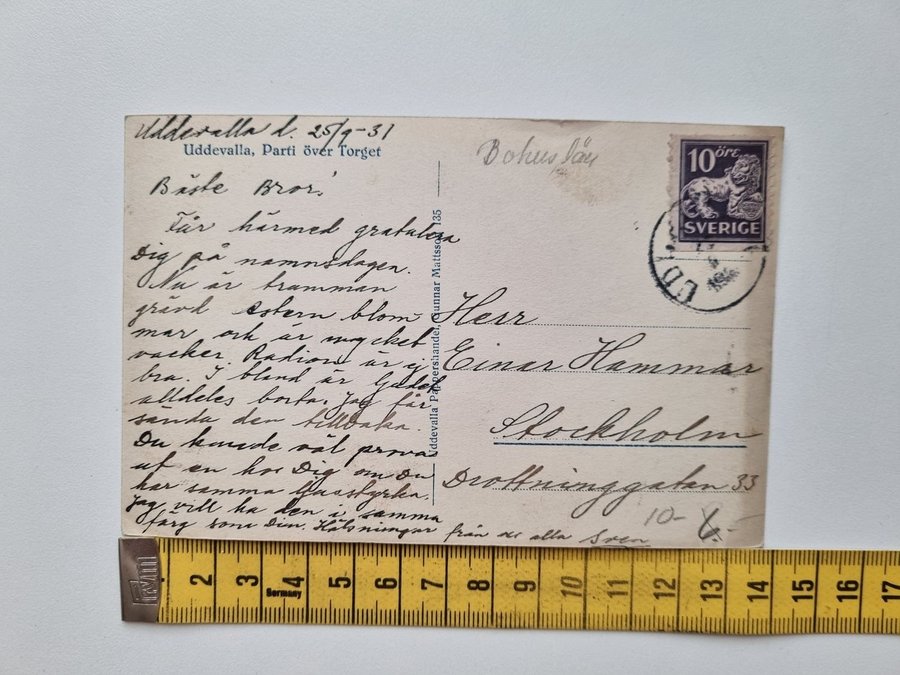 Uddevalla d. 25/9-31
Uddevalla, Parti över Torget
Bäste Bror!
Får härmed gratulera
Dig på namnsdagen.
Nu är
Astern blom
mar och är mycket
vacker. Radion är ej
bra. I bland är ljudet
alldeles borta. Jag får
sända den tillbaka.
Du kunde väl prova
ut en hos Dig om Du
har samma
Jag vill ha den i samma
färg som Din. Hälsningar från oss alla Sven
Uddevalla Pappershandel, Gunnar Mattsson, 135
Bohuslän
10 ÖRE
SVERIGE
UD
Herr
Einar Hammar
Stockholm
Drottninggatan 33
10-
6:-
Germany
1 2 3 4 5 6 7 8 9 10 11 12 13 14 15 16 17